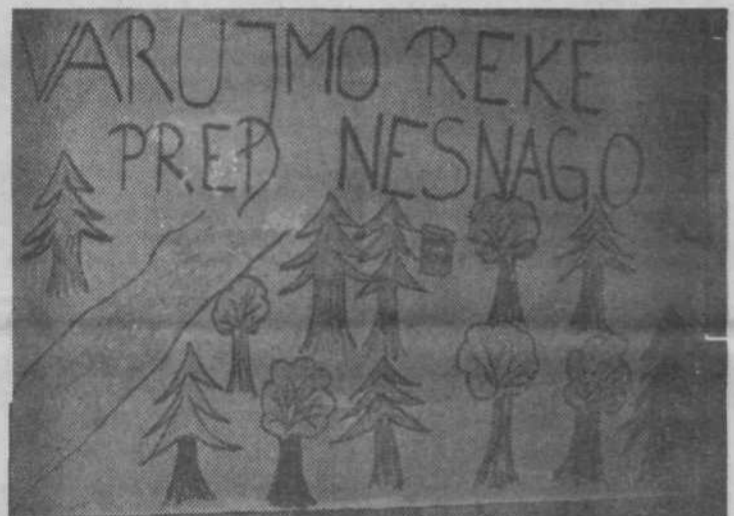 VARUJMO REKE
PRED NESNAGO